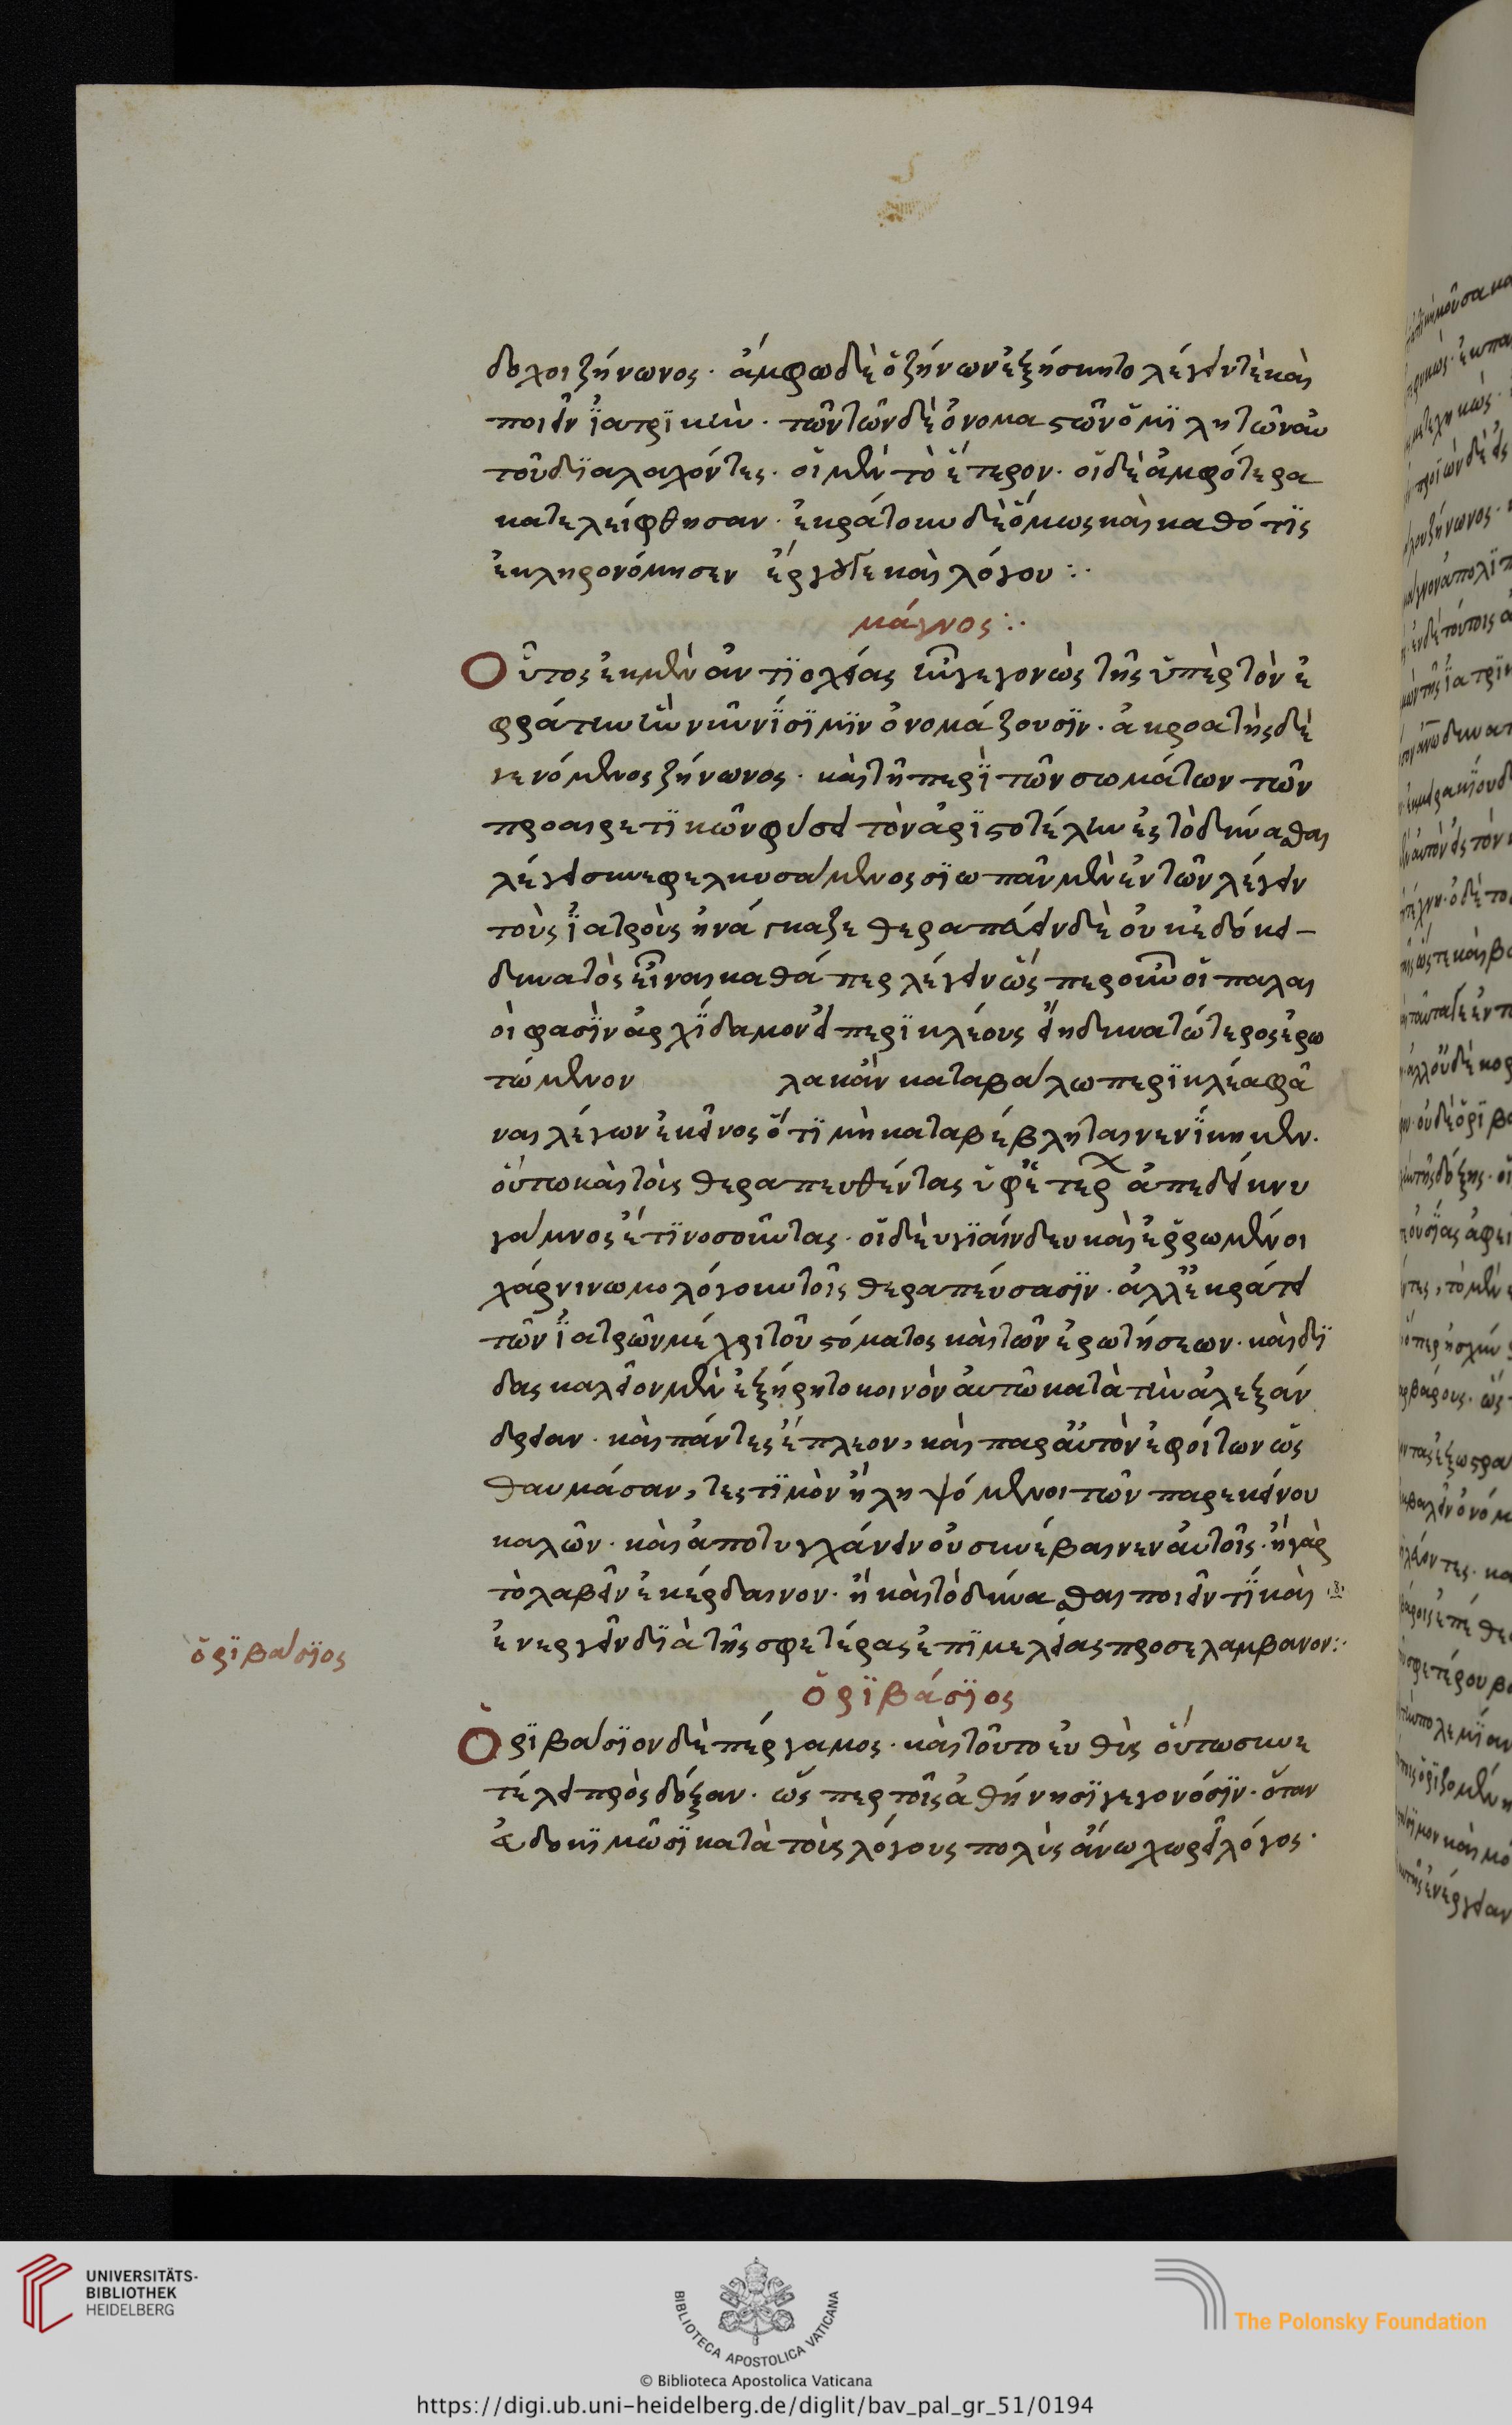 δοχοι ζήνωνος · ἄμφω δὲ ὁ ζήνων ἐξήσκητο λέγειν τὲ καὶ
ποιεῖν ἰατρϊκήν · τῶν των δὲ ὀνομαστῶν ὁμϊλητῶν αυ
τοῦ δϊαλαχόντες · οἱ μὲν τὸ ἕτερον · οἱ δὲ ἀμφότερα
κατελείφθησαν · ἐκράτουν δὲ ὅμως καὶ καθό τϊς
ἐκληρονόμησεν ἔργου τε καὶ λόγου :·
μάγνος :·
Οὗτος ἐκ μὲν ἀντϊοχείας ἦν γεγονὼς τῆς ὑπὲρ τὸν ἐ
φράτην ἣν νῦν νΐσϊμϊν ὀνομάζουσϊν · ἀκροατὴς δὲ
γενόμενος ζήνωνος · καὶ τῆ περὶ τῶν σωμάτων τῶν
προαιρετϊκῶν φύσει τὸν ἀρϊστοτέλην ἐς τὸ δύνασθαι
λέγει συνεφελκυσάμενος σϊωπᾶν μὲν ἐν τῶν λέγειν
τοὺς ἰατροὺς ἠνάγκαζε θεραπεύειν δὲ οὐκ ἐδόκει –
δυνατὸς εἶναι καθάπερ λέγειν ὥσπερ οὖν οἱ παλαι
οὶ φασὶν ἀρχΐδαμον εἰ περϊκλέους εἴη δυνατώτερος ἐρω
τώμενον λα κἂν καταβάλω περϊκλέα φᾶ
ναι λέγων ἐκεῖνος ὅτϊ μὴ καταβέβληται νενΐκηκεν ·
οὕτω καὶ τοὶς θεραπευθέντας ὑφ' ἑτέρ ἀπεδείκνυ
γάμνος ἔτϊ νοσοῦντας · οἱ δὲ υγϊαίνδευ καὶ ἐρρωμένοι
χάρνιν ωμολόγουν τοῖς θεραπεύσασϊν · ἀλλ' ἐκράτει
τῶν ἰατρῶν μέχρι τοῦ στόματος καὶ τῶν ἐρωτήσεων · καὶ δϊ
δασκαλεῖον μὲν ἐξήρητο κοινὸν αὐτῶ κατὰ τὴν ἀλεξάν
δρειαν · καὶ πάντες ἔπλεον, καὶ παρ' αὐτὸν ἐφοίτων ὡς
θαυμάσαν,τες τϊμὸν ἢ ληψόμενοι τῶν παρ' ἐκείνου
καλῶν · καὶ ἀποτυγχάνειν οὐ συνέβαινεν αὐτοῖς · ἢ γὰρ
τὸ λαβεῖν ἐκέρδαινον · ἢ καὶ τὸ δύνασθαι ποιεῖν τϊ καὶ
ἐνεργεῖν δϊὰ τῆς σφετέρας ἐπϊμελείας προσελαμβανον :·
ὀρϊβάσϊος
ὀρϊβάσϊος
Ὀρϊβάσϊον δὲ πέργαμος · καὶ τοῦτο εὐθὺς οὕτω συνε
τέλει πρὸς δόξαν · ὥσπερ τοῖς ἀθήνησϊ γεγονόσϊν · ὅταν
εὐδοκϊμῶσϊ κατὰ τοὶς λόγους πολὺς ἄνω χωρεῖ λόγος ·
UNIVERSITÄTS-
BIBLIOTHEK
HEIDELBERG
BIBLIOTECA APOSTOLICA VATICANA
The Polonsky Foundation
© Biblioteca Apostolica Vaticana
https://digi.ub.uni-heidelberg.de/diglit/bav_pal_gr_51/0194